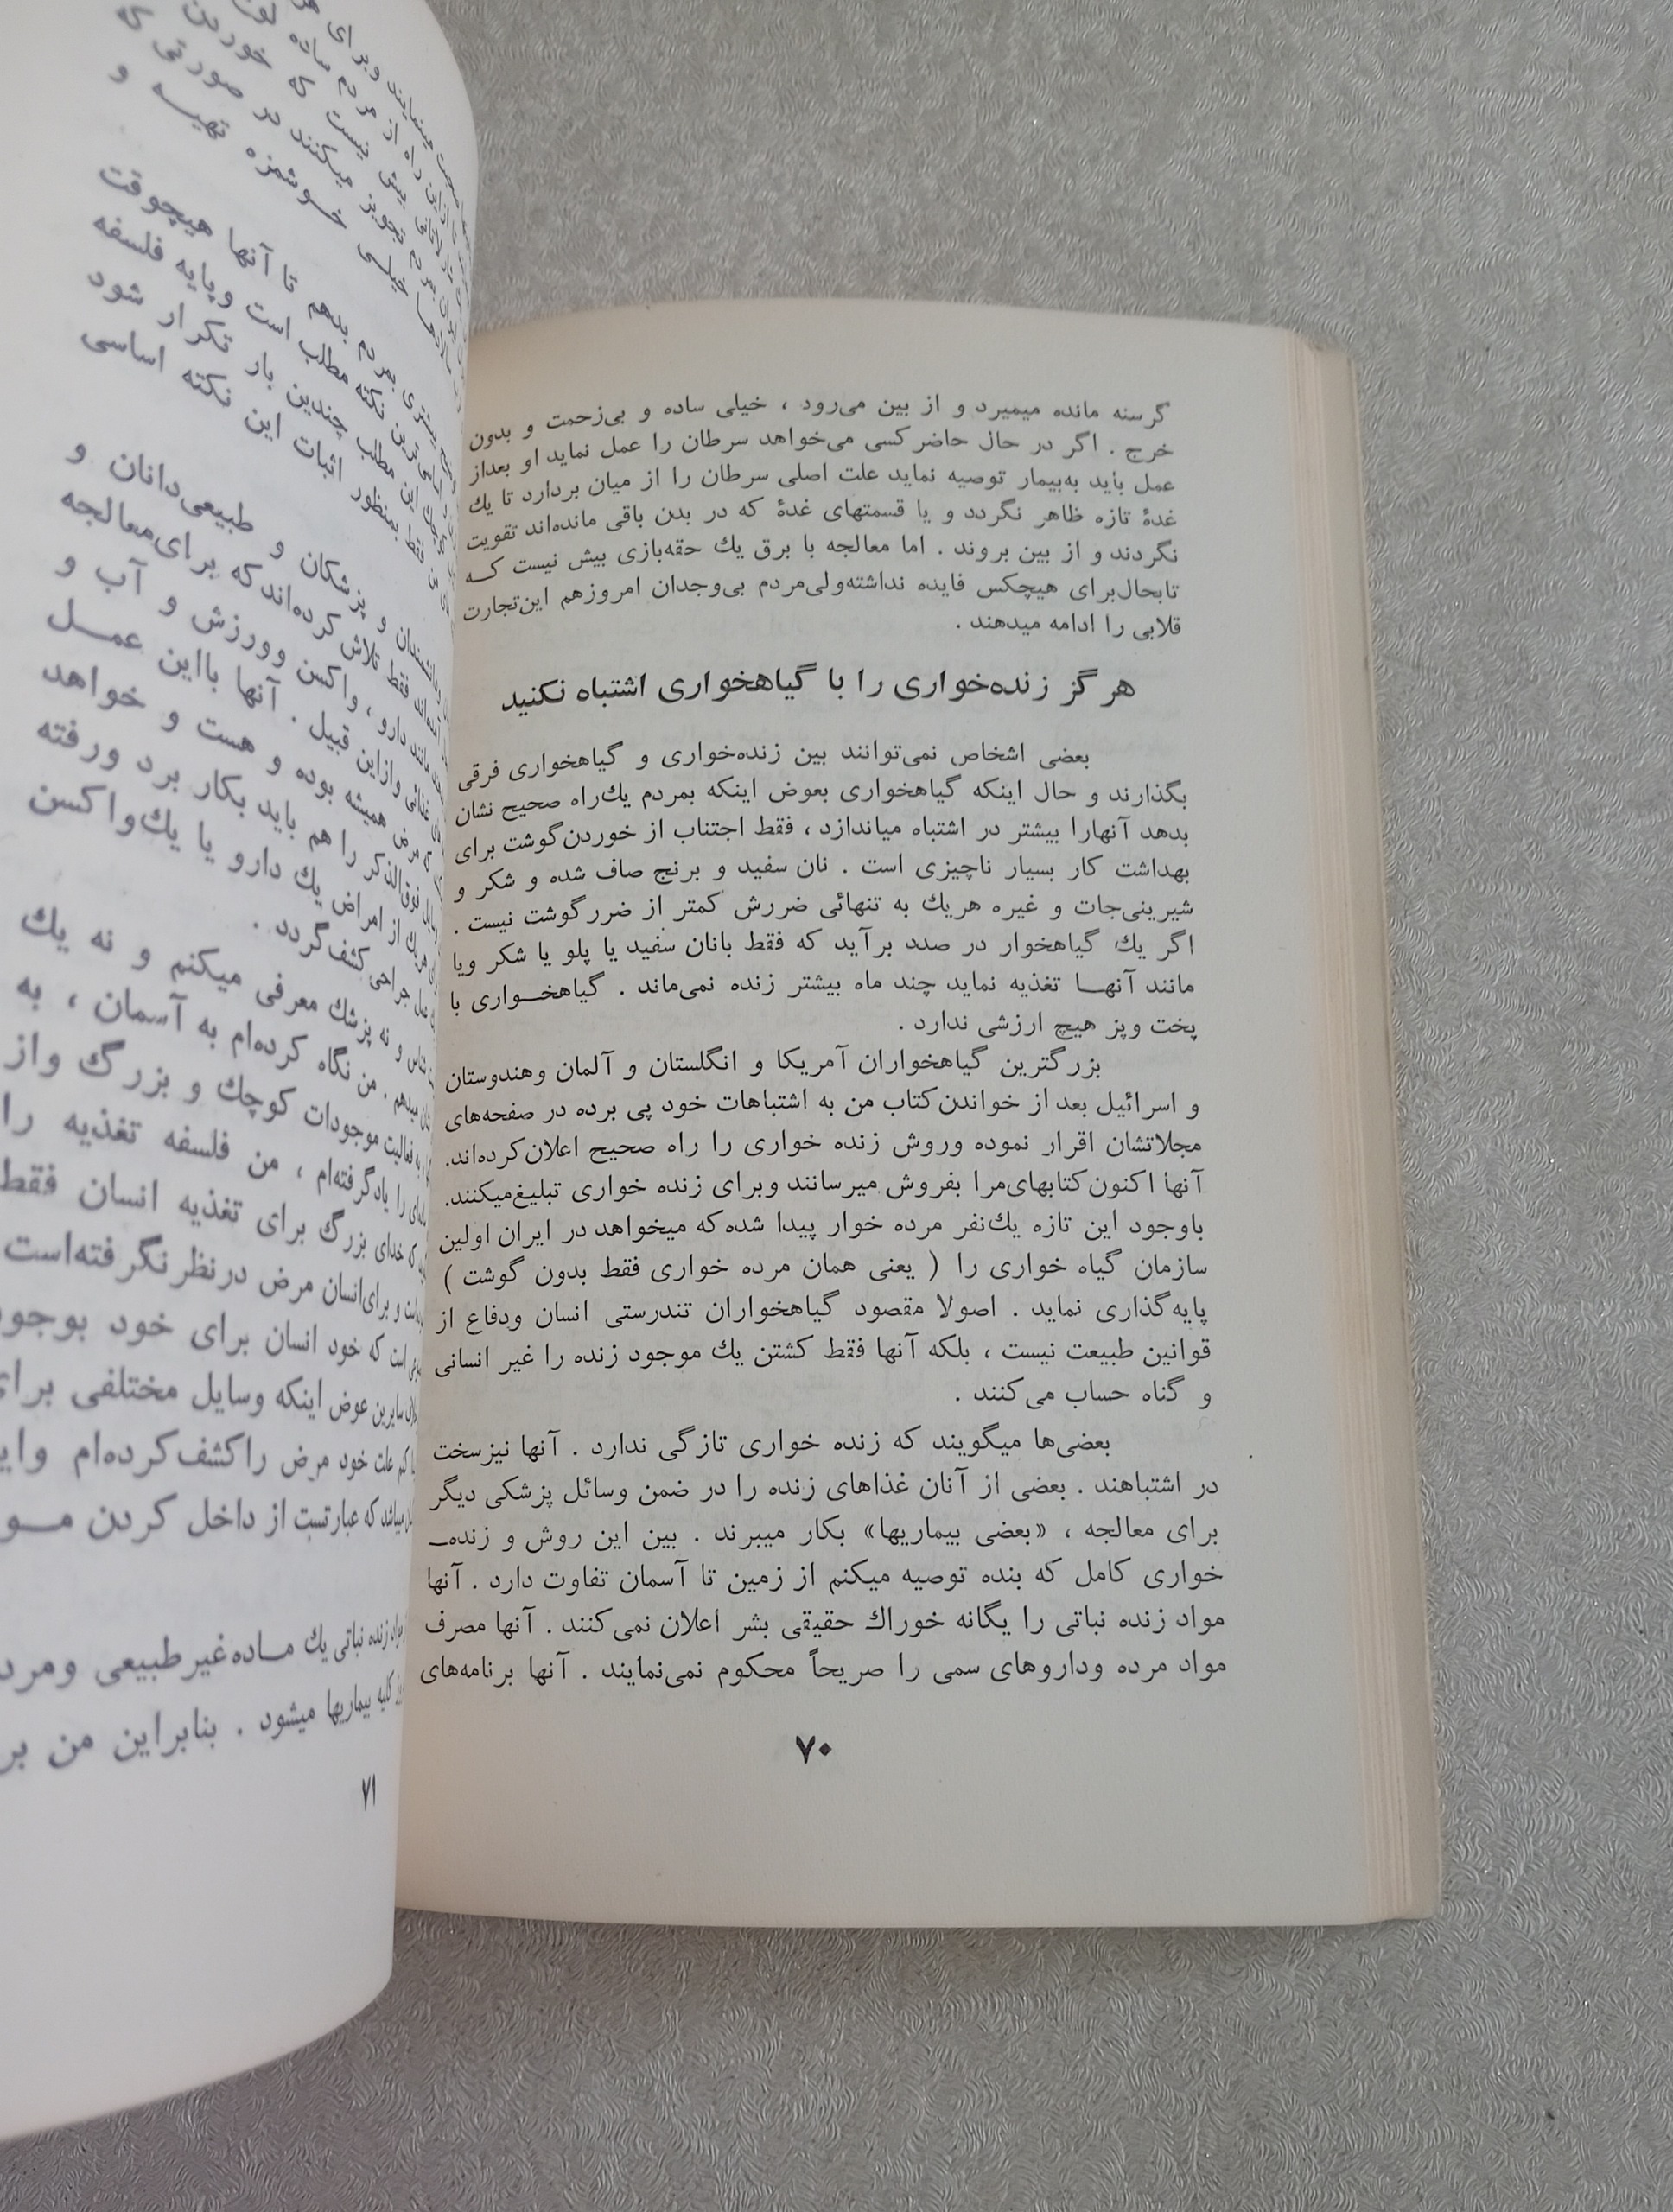 گرسنه مانده میمیرد و از بین می‌رود ، خیلی ساده و بی‌زحمت و بدون
خرج . اگر در حال حاضر کسی می‌خواهد سرطان را عمل نماید او بعداز
عمل باید به‌بیمار توصیه نماید علت اصلی سرطان را از میان بردارد تا یك
غدهٔ تازه ظاهر نگردد و یا قسمتهای غدهٔ که در بدن باقی مانده‌اند تقویت
نگردند و از بین بروند . اما معالجه با برق یك حقه‌بازی بیش نیست کـه
تابحال‌برای هیچکس فایده نداشته‌ولی‌مردم بی‌وجدان امروزهم این‌تجارت
قلابی را ادامه میدهند .
هرگز زنده‌خواری را با گیاهخواری اشتباه نکنید
بعضی اشخاص نمی‌توانند بین زنده‌خواری و گیاهخواری فرقی
بگذارند و حال اینکه گیاهخواری بعوض اینکه بمردم یك‌راه صحیح نشان
بدهد آنهارا بیشتر در اشتباه میاندازد ، فقط اجتناب از خوردن‌گوشت برای
بهداشت کار بسیار ناچیزی است . نان سفید و برنج صاف شده و شکر و
شیرینی‌جات و غیره هریك به تنهائی ضررش کمتر از ضررگوشت نیست .
اگر یك گیاهخوار در صدد برآید که فقط بانان سفید یا پلو یا شکر ویا
مانند آنهـا تغذیه نماید چند ماه بیشتر زنده نمی‌ماند . گیاهخـواری با
پخت وپز هیچ ارزشی ندارد .
بزرگترین گیاهخواران آمریکا و انگلستان و آلمان وهندوستان
و اسرائیل بعد از خواندن‌کتاب من به اشتباهات خود پی برده در صفحه‌های
مجلاتشان اقرار نموده وروش زنده خواری را راه صحیح اعلان‌کرده‌اند.
آنها اکنون‌کتابهای‌مرا بفروش میرسانند وبرای زنده خواری تبلیغ‌میکنند.
باوجود این تازه یك‌نفر مرده خوار پیدا شده‌که میخواهد در ایران اولین
سازمان گیاه خواری را ( یعنی همان مرده خواری فقط بدون گوشت )
پایه‌گذاری نماید . اصولا مقصود گیاهخواران تندرستی انسان ودفاع از
قوانین طبیعت نیست ، بلکه آنها فقط کشتن یك موجود زنده را غیر انسانی
و گناه حساب می‌کنند .
بعضی‌ها میگویند که زنده خواری تازگی ندارد . آنها نیزسخت
در اشتباهند . بعضی از آنان غذاهای زنده را در ضمن وسائل پزشکی دیگر
برای معالجه ، «بعضی بیماریها» بکار میبرند . بین این روش و زنده‌ـ
خواری کامل که بنده توصیه میکنم از زمین تا آسمان تفاوت دارد . آنها
مواد زنده نباتی را یگانه خوراك حقیقی بشر اعلان نمی‌کنند . آنها مصرف
مواد مرده وداروهای سمی را صریحاً محکوم نمی‌نمایند . آنها برنامه‌های
۷۰
خوشمزه تهیـه و
بمردم بدهم تا آنها هیچوقت
نکته مطلب است وپایه فلسفه
این مطلب چندین بار تکرار شود
فقط بمنظور اثبات این نکته اساسی
و پزشکان و طبیعی‌دانان و
فقط تلاش کرده‌اندکه برای‌معالجه
مانند دارو ، واکسن وورزش و آب و
وازاین قبیل . آنها بااین عمـل
مرض همیشه بوده و هست و خواهد
فوق‌الذکر را هم باید بکار برد ورفته
از امراض یك دارو یا یك‌واکسن
جراحی کشف‌گردد .
و نه پزشك معرفی میکنم و نه یك
میدهم . من نگاه کرده‌ام به آسمان ، به
فعالیت موجودات کوچك و بزرگ واز
را یادگرفته‌ام ، من فلسفه تغذیه را
که خدای بزرگ برای تغذیه انسان فقط
و برای‌انسان مرض درنظر نگرفته‌است
است که خود انسان برای خود
سایرین عوض اینکه وسایل مختلفی
علت خود مرض راکشف‌کرده‌ام
میباشد که عبارتست از داخل کردن
زنده نباتی یك مـاده‌غیرطبیعی
کلیه بیماریها میشود . بنابراین من
۷۱